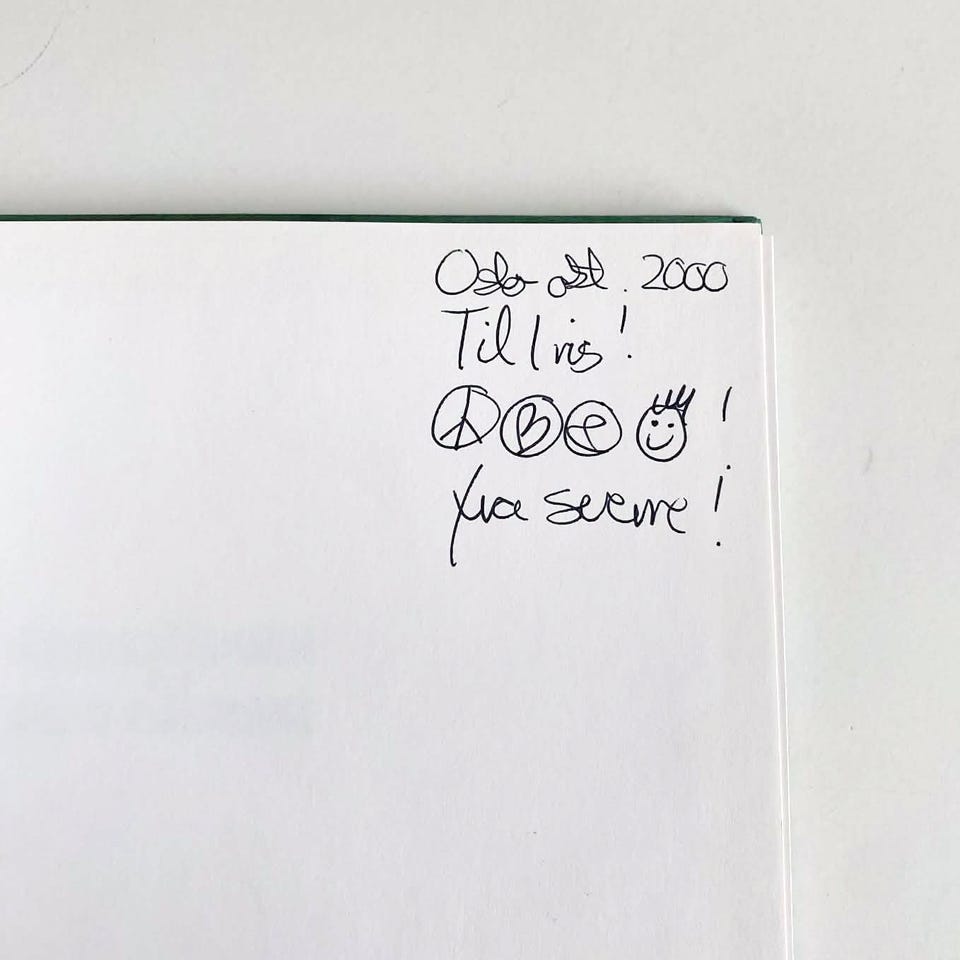 Oslo okt. 2000
Til Iris!
!
Fra Sverre!